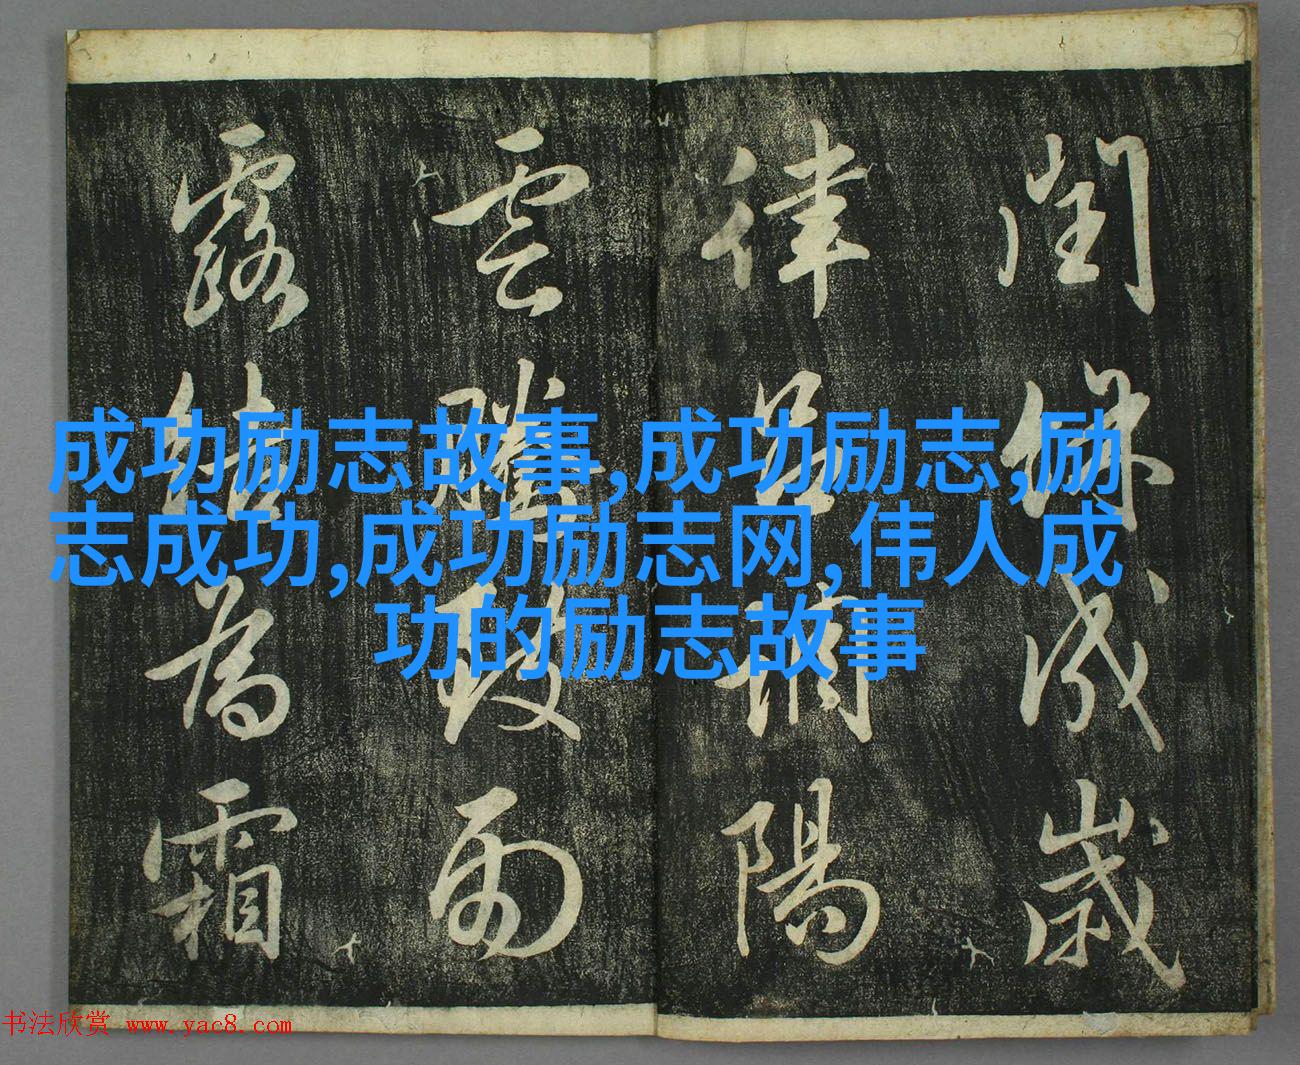 閏餘成歲
律呂調陽
雲騰致雨
露結為霜
成功励志故事,成功励志,励
志成功,成功励志网,伟人成
功的励志故事
书法欣赏 www.yac8.com